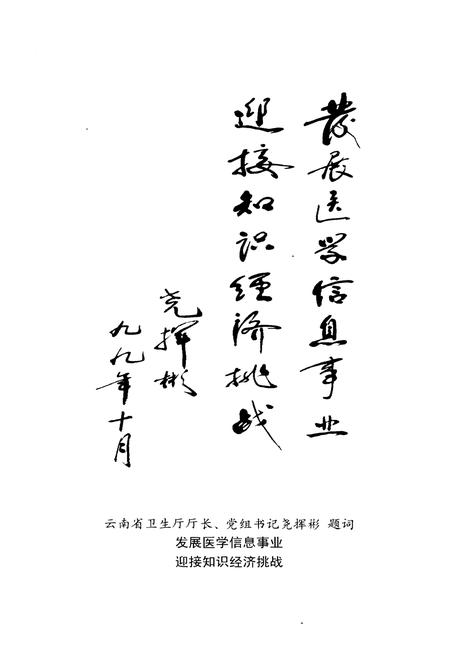 發展医学信息事业
迎接知识經济挑战
尧挥彬
九九年十月
云南省卫生厅厅长、党组书记尧挥彬 题词
发展医学信息事业
迎接知识经济挑战